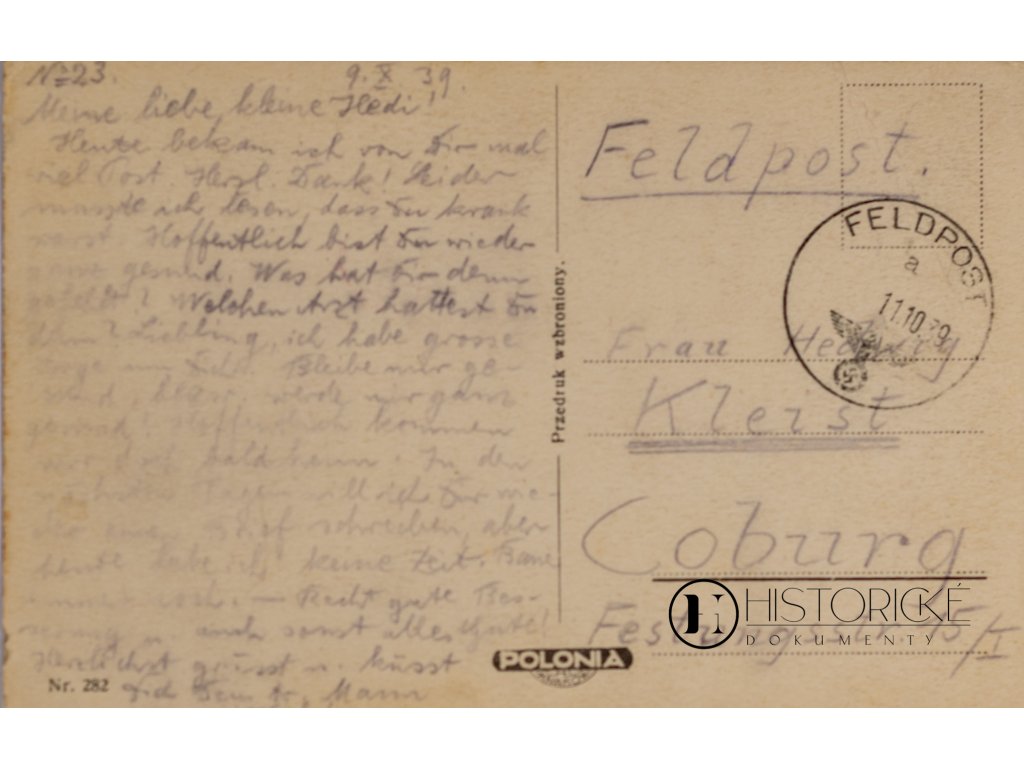 No 23. 9. X 39.
Meine liebe, kleine Hedi!
Heute bekam ich von Dir mal
viel Post. Herzl. Dank! Leider
musste ich lesen, dass Du krank
warst. Hoffentlich bist Du wieder
ganz gesund. Was hat Dir denn
gefehlt? Welchen Arzt hattest Du
denn? Liebling, ich habe grosse
Sorge um Dich. Bleibe mir ge-
sund, werde mir ganz
gesund! Hoffentlich kommen
wir doch bald heim. In den
nächsten Tagen will ich Dir wie-
der einen Brief schreiben, aber
heute habe ich keine Zeit.
immer noch. — Recht gute Bes-
serung u. auch sonst alles Gute!
Herzlichst grüsst u. küsst
Dich Dein Mann
Nr. 282
Przedruk wzbroniony.
POLONIA
Feldpost.
FELDPOST
a
11.10.39
Frau Hedwig
Kleist
Coburg
Festungsstr. 15/I
HISTORICKÉ
DOKUMENTY